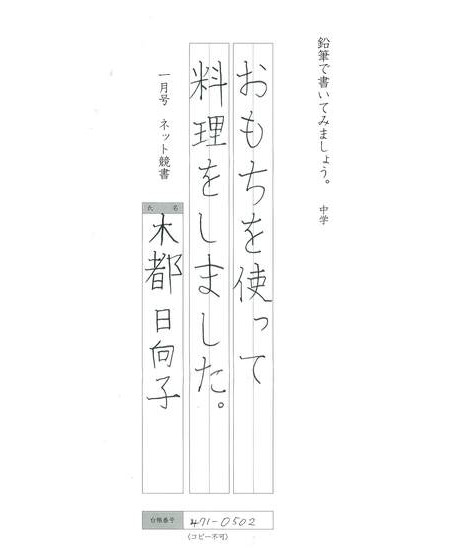 鉛筆で書いてみましょう。 中学
おもちを使って
料理をしました。
一月号 ネット競書
氏名
木都 日向子
台帳番号 471-0502
(コピー不可)